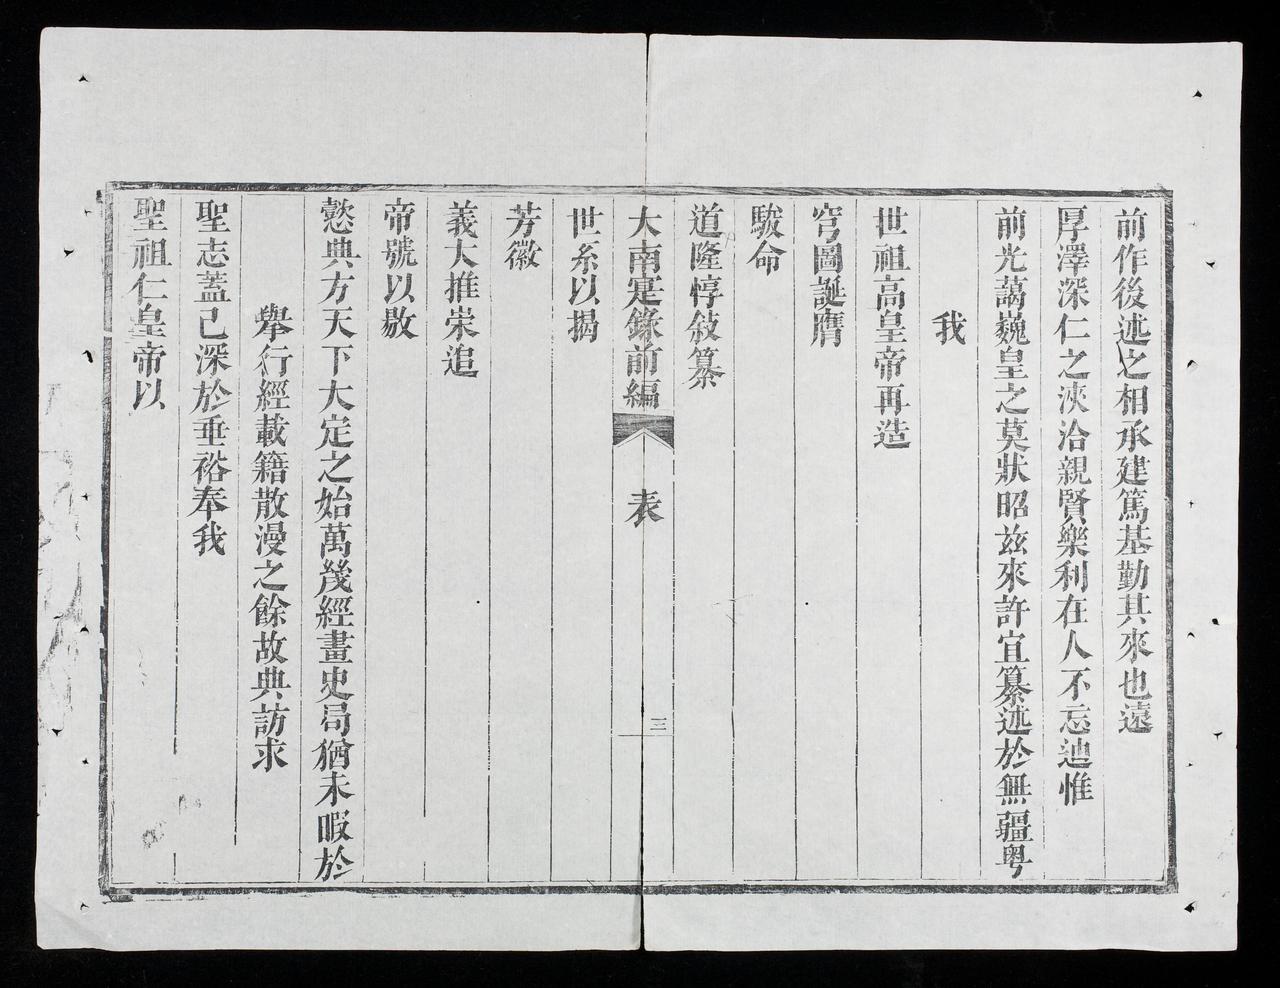 前作後述之相承建篤基勤其來也遠
厚澤深仁之浹洽親賢樂利在人不忘迪惟
前光藹巍皇之莫狀昭兹來許宜纂述於無疆粤
我
世祖高皇帝再造
穹圖誕膺
駿命
道隆惇敍纂
大南寔錄前編
表
三
世系以揭
芳徽
義大推崇追
帝號以敭
懿典方天下大定之始萬幾經畫史局猶未暇於
舉行經載籍散漫之餘故典訪求
聖志蓋已深於垂裕奉我
聖祖仁皇帝以